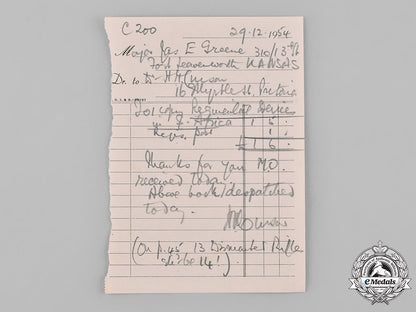 C 200
29.12.1954
Major Jas E Greene 310/13th
Fort Leavenworth KANSAS
Dr. to Dr H H Curson
16 Myrtle St, Pretoria
To 1 copy Regimental Devices
in Africa 1 5
post 1
£ 1 6
Thanks for your M.O.
received today.
Above book despatched
today.
(On p. 45, 13 Dismounted Rifles
shd be 14!)
eMedals